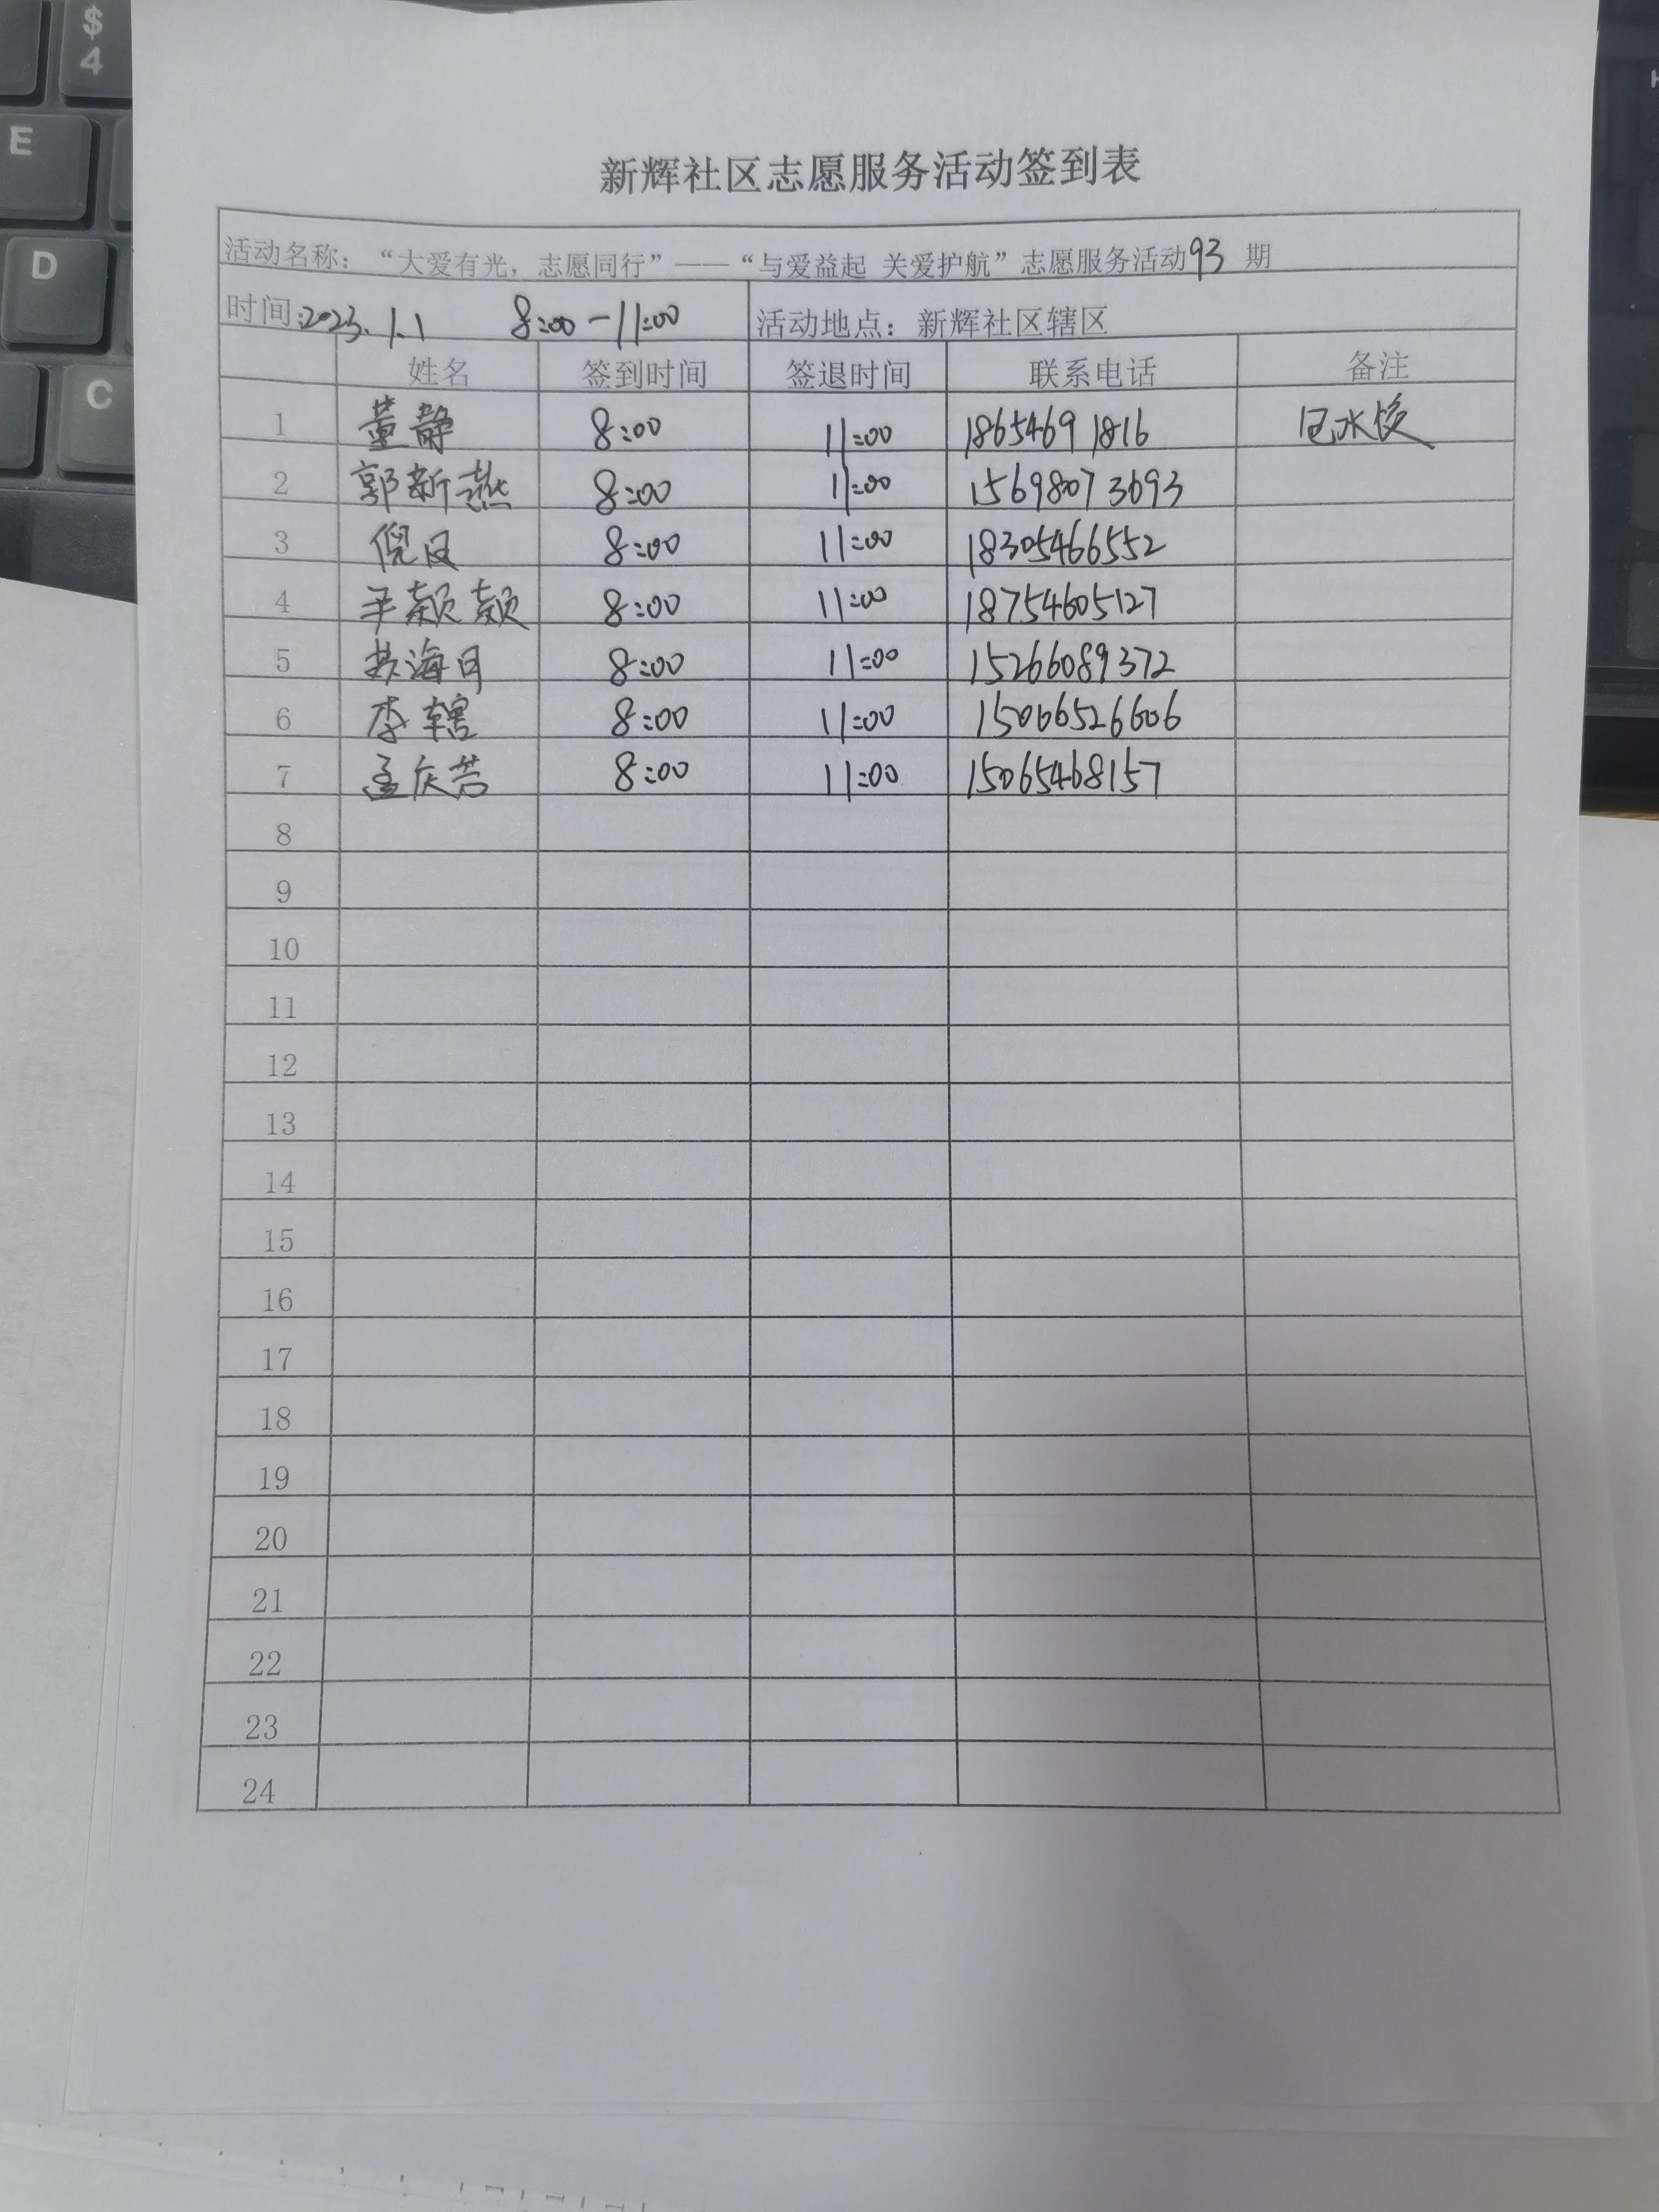 $
4
E
D
C
新辉社区志愿服务活动签到表
活动名称：“大爱有光，志愿同行”——“与爱益起 关爱护航”志愿服务活动93 期
时间：2023.1.1 8:00-11:00 活动地点：新辉社区辖区
姓名 签到时间 签退时间 联系电话 备注
1 董静 8:00 11:00 18654691816
2 郭新燕 8:00 11:00 15698073693
3 倪 8:00 11:00 18305466552
4 颖颖 8:00 11:00 18754605127
5 海 8:00 11:00 15266089372
6 李辖 8:00 11:00 15066526606
7 孟庆 8:00 11:00 15065468157
8
9
10
11
12
13
14
15
16
17
18
19
20
21
22
23
24